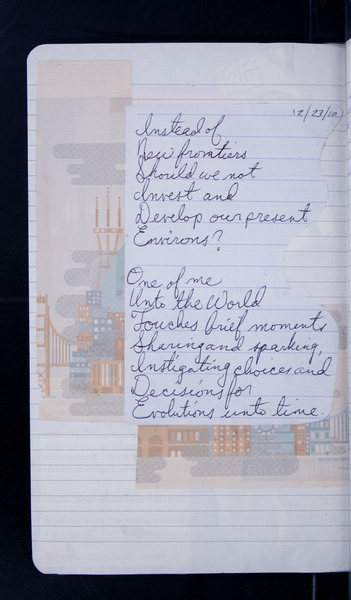 12/23/10
Instead of
New frontiers
Should we not
Invest and
Develop our present
Environs?
One of me
Unto the World
Touches brief moments
Sharing and sparking,
Instigating choices and
Decisions for
Evolutions unto time.